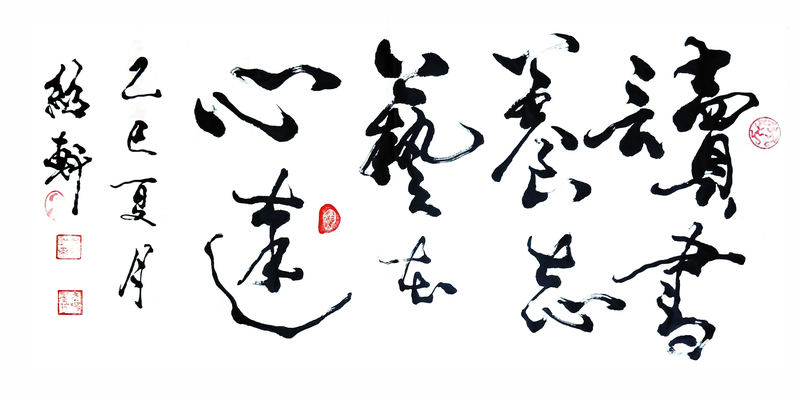 讀書
養志
藝在
心達
乙巳夏月
軒